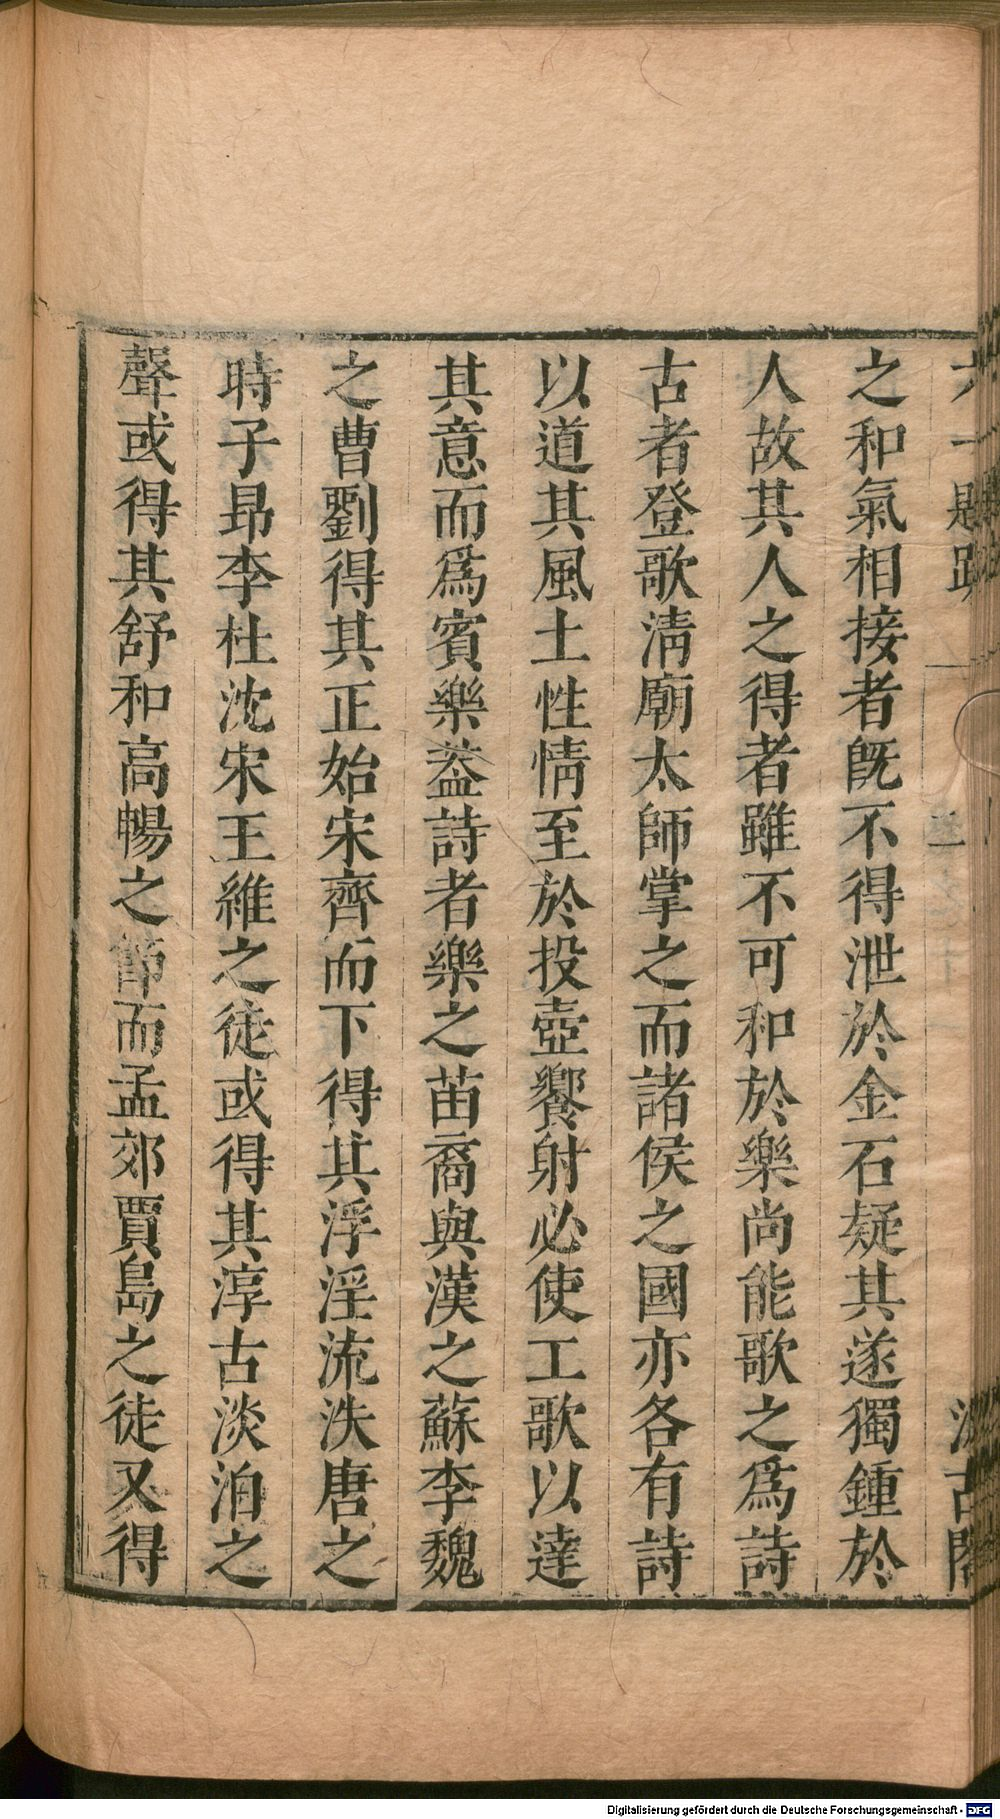 六一題跋
卷一
汲古閣
之和氣相接者旣不得泄於金石疑其遂獨鍾於
人故其人之得者雖不可和於樂尚能歌之爲詩
古者登歌淸廟太師掌之而諸侯之國亦各有詩
以道其風土性情至於投壺饗射必使工歌以達
其意而爲賓樂葢詩者樂之苗裔與漢之蘇李魏
之曹劉得其正始宋齊而下得其浮淫流泆唐之
時子昻李杜沈宋王維之徒或得其淳古淡泊之
聲或得其舒和高暢之節而孟郊賈島之徒又得
Digitalisierung gefördert durch die Deutsche Forschungsgemeinschaft - DFG